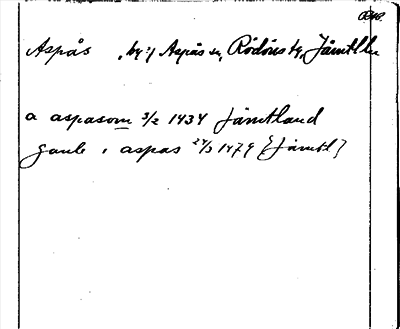 Aspås, by i Aspås sn, Rödöns tg, Jämtl. l.
a aspasom 3/2 1434 Jämtland
gauk i aspas 24/3 1479 (Jämtl)